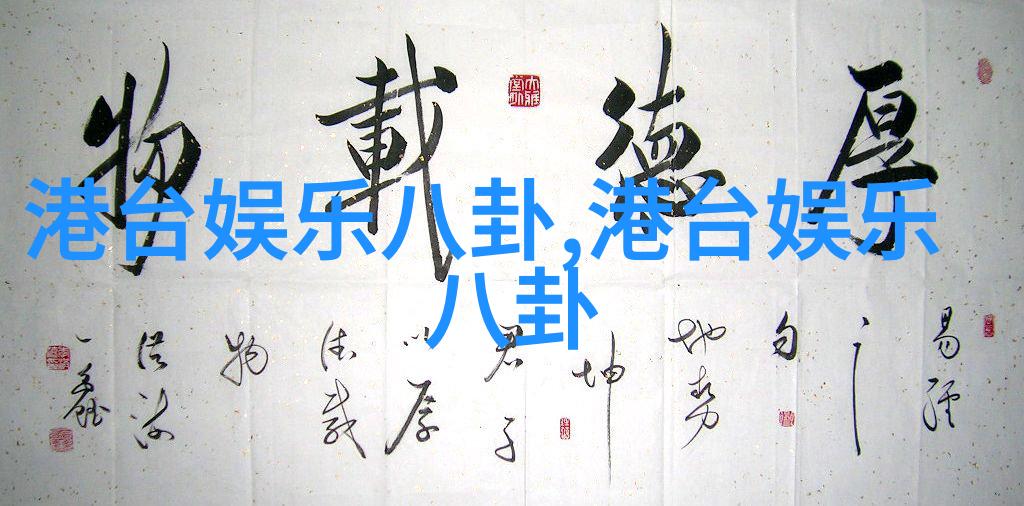 厚德載物
易經
之
句
地勢
坤
君子
以厚
德載
物
港台娱乐八卦,港台娱乐
八卦